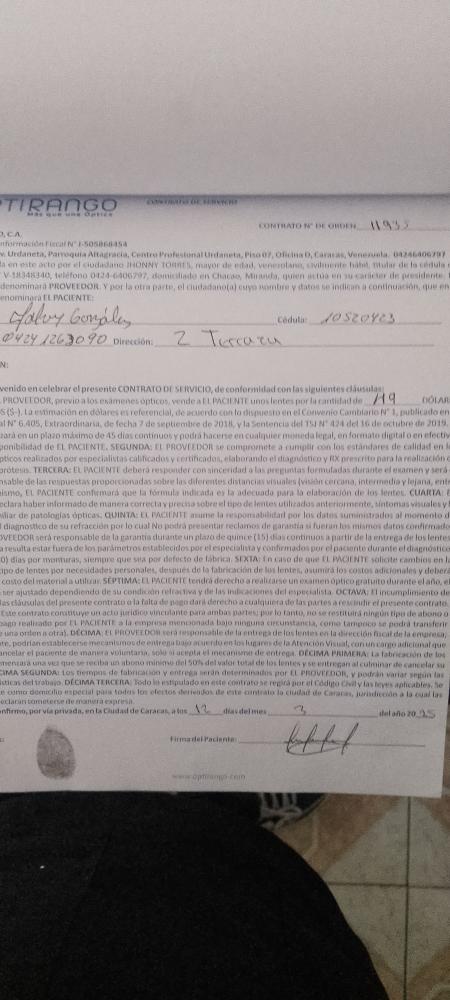 PTIRANGO
Más que una Óptica
CONTRATO DE SERVICIO
CONTRATO N° DE ORDEN. 11935
O, C.A.
nformación Fiscal N° J-505868454
v. Urdaneta, Parroquia Altagracia, Centro Profesional Urdaneta, Piso 07, Oficina D, Caracas, Venezuela. 04246406797
da en este acto por el ciudadano JHONNY TORRES, mayor de edad, venezolano, civilmente hábil, titular de la cédula
V-18348340, teléfono 0424-6406797, domiciliado en Chacao, Miranda, quien actúa en su carácter de presidente.
denominará PROVEEDOR. Y por la otra parte, el ciudadano(a) cuyo nombre y datos se indican a continuación, que en
enominará EL PACIENTE:
González Cédula: 10520423
04241263090 Dirección: 2 Terraza
N:
venido en celebrar el presente CONTRATO DE SERVICIO, de conformidad con las siguientes cláusulas:
PROVEEDOR, previo a los exámenes ópticos, vende a EL PACIENTE unos lentes por la cantidad de 119 DÓLAR
S ($-). La estimación en dólares es referencial, de acuerdo con lo dispuesto en el Convenio Cambiario N° 1, publicado en
al N° 6.405, Extraordinaria, de fecha 7 de septiembre de 2018, y la Sentencia del TSJ N° 424 del 16 de octubre de 2019.
zará en un plazo máximo de 45 días continuos y podrá hacerse en cualquier moneda legal, en formato digital o en efectiv
ponibilidad de EL PACIENTE. SEGUNDA: EL PROVEEDOR se compromete a cumplir con los estándares de calidad en l
pticos realizados por especialistas calificados y certificados, elaborando el diagnóstico y RX prescrito para la realización
prótesis. TERCERA: EL PACIENTE deberá responder con sinceridad a las preguntas formuladas durante el examen y será
nsable de las respuestas proporcionadas sobre las diferentes distancias visuales (visión cercana, intermedia y lejana, ent
ismo, EL PACIENTE confirmará que la fórmula indicada es la adecuada para la elaboración de los lentes. CUARTA: E
eclara haber informado de manera correcta y precisa sobre el tipo de lentes utilizados anteriormente, síntomas visuales y
iliar de patologías ópticas. QUINTA: EL PACIENTE asume la responsabilidad por los datos suministrados al momento d
l diagnostico de su refracción por lo cual No podrá presentar reclamos de garantía si fueran los mismos datos confirmado
OVEEDOR será responsable de la garantía durante un plazo de quince (15) días continuos a partir de la entrega de los lentes
a resulta estar fuera de los parámetros establecidos por el especialista y confirmados por el paciente durante el diagnóstico
0) días por monturas, siempre que sea por defecto de fábrica. SEXTA: En caso de que EL PACIENTE solicite cambios en l
ipo de lentes por necesidades personales, después de la fabricación de los lentes, asumirá los costos adicionales y deberá
costo del material a utilizar. SÉPTIMA: EL PACIENTE tendrá derecho a realizarse un examen óptico gratuito durante el año, el
ser ajustado dependiendo de su condición refractiva y de las indicaciones del especialista. OCTAVA: El incumplimiento de
las cláusulas del presente contrato o la falta de pago dará derecho a cualquiera de las partes a rescindir el presente contrato.
Este contrato constituye un acto jurídico vinculante para ambas partes; por lo tanto, no se restituirá ningún tipo de abono o
pago realizado por EL PACIENTE a la empresa mencionada bajo ninguna circunstancia, como tampoco se podrá transferir
e una orden a otra). DÉCIMA: EL PROVEEDOR será responsable de la entrega de los lentes en la dirección fiscal de la empresa;
te, podrían establecerse mecanismos de entrega bajo acuerdo en los lugares de la Atención Visual, con cargo adicional que
ancelar el paciente de manera voluntaria, solo si acepta el mecanismo de entrega. DÉCIMA PRIMERA: La fabricación de los
menzará una vez que se reciba un abono mínimo del 50% del valor total de los lentes y se entregan al culminar de cancelar su
CIMA SEGUNDA: Los tiempos de fabricación y entrega serán determinados por EL PROVEEDOR, y podrán variar según las
ísticas del trabajo. DÉCIMA TERCERA: Todo lo estipulado en este contrato se regirá por el Código Civil y las leyes aplicables. Se
e como domicilio especial para todos los efectos derivados de este contrato la ciudad de Caracas, jurisdicción a la cual las
eclaran someterse de manera expresa.
onfirmo, por vía privada, en la Ciudad de Caracas, a los 12 días del mes 3 del año 2025
Firma del Paciente:
www.optirango.com